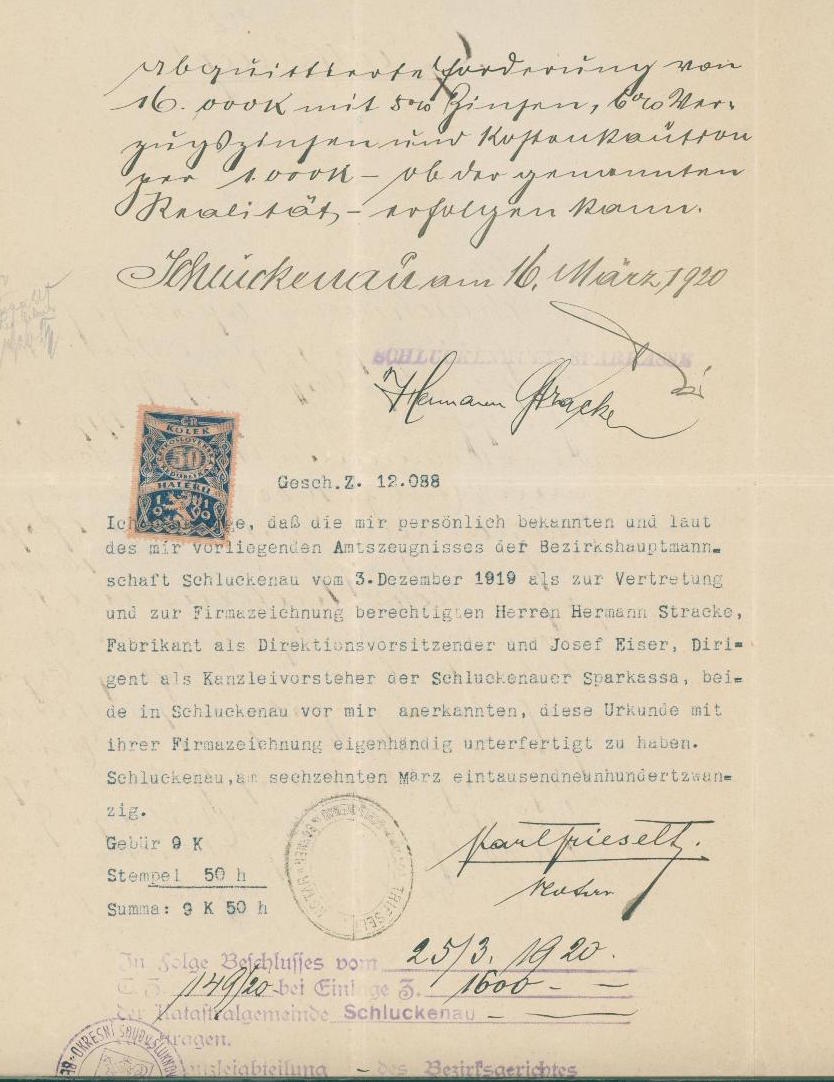 abquittierte Forderung von
16.000K mit 5% Zinsen, 6% Ver-
zugszinsen und Kostenkaution
per 1.000K – ob der genannten
Realität – erfolgen kann.
Schluckenau am 16. März 1920
SCHLUCKENAUER SPARKASSE
Hermann Stracke
ČR
KOLEK
50
HALÉŘŮ
1919
Gesch.Z. 12.088
Ich ge, daß die mir persönlich bekannten und laut
des mir vorliegenden Amtszeugnisses der Bezirkshauptmann=
schaft Schluckenau vom 3.Dezember 1919 als zur Vertretung
und zur Firmazeichnung berechtigten Herren Hermann Stracke,
Fabrikant als Direktionsvorsitzender und Josef Eiser, Diri=
gent als Kanzleivorsteher der Schluckenauer Sparkassa, bei=
de in Schluckenau vor mir anerkannten, diese Urkunde mit
ihrer Firmazeichnung eigenhändig unterfertigt zu haben.
Schluckenau,am sechzehnten März eintausendneunhundertzwan=
zig.
Gebür 9 K
Stempel 50 h
Summa: 9 K 50 h
Notar
In Folge Beschlusses vom 25/3. 1920.
E. Z. 149/20 bei Einlage Z. 1600 – –
der Katastralgemeinde Schluckenau – –
tragen.
nzleiabteilung – des Bezirksgerichtes
OKRESNÍ SOUD